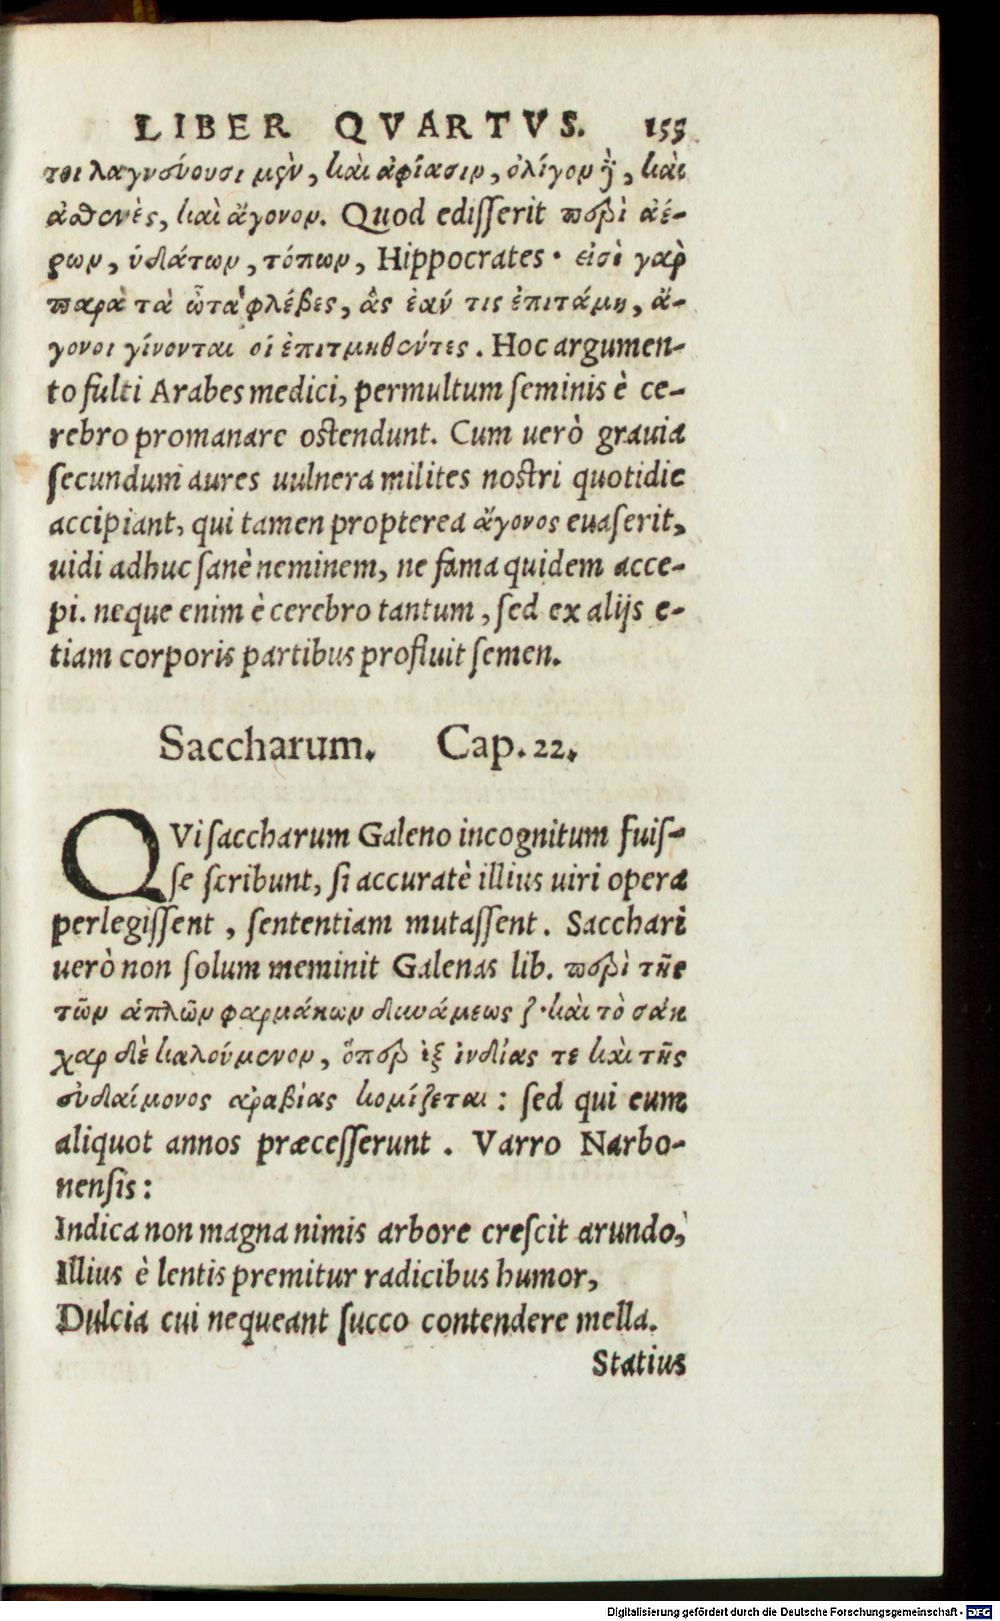 LIBER QVARTVS. 153
τοι λαγνεύουσι μὲν, καὶ ἀφίασιν, ὀλίγον δὲ, καὶ
ἀσθενὲς, καὶ ἄγονον. Quod ediſſerit περὶ ἀέ-
ρων, ὑδάτων, τόπων, Hippocrates· εἰσὶ γὰρ
παρὰ τὰ ὦτα φλέβες, ἃς ἐάν τις ἐπιτάμῃ, ἄ-
γονοι γίνονται οἱ ἐπιτμηθέντες. Hoc argumen-
to fulti Arabes medici, permultum ſeminis è ce-
rebro promanare oſtendunt. Cum uerò grauia
ſecundum aures uulnera milites noſtri quotidie
accipiant, qui tamen propterea ἄγονος euaſerit,
uidi adhuc ſanè neminem, ne fama quidem acce-
pi. neque enim è cerebro tantum, ſed ex alijs e-
tiam corporis partibus profluit ſemen.
Saccharum. Cap. 22.
QVi ſaccharum Galeno incognitum fuiſ-
ſe ſcribunt, ſi accuratè illius uiri opera
perlegiſſent, ſententiam mutaſſent. Sacchari
uerò non ſolum meminit Galenas lib. περὶ τῆς
τῶν ἁπλῶν φαρμάκων δυνάμεως ζ· καὶ τὸ σάκ
χαρ δὲ καλούμενον, ὅπερ ἐξ ἰνδίας τε καὶ τῆς
εὐδαίμονος ἀραβίας κομίζεται: ſed qui eum
aliquot annos præceſſerunt. Varro Narbo-
nenſis:
Indica non magna nimis arbore creſcit arundo,
Illius è lentis premitur radicibus humor,
Dulcia cui nequeant ſucco contendere mella.
Statius
Digitalisierung gefördert durch die Deutsche Forschungsgemeinschaft - DFG